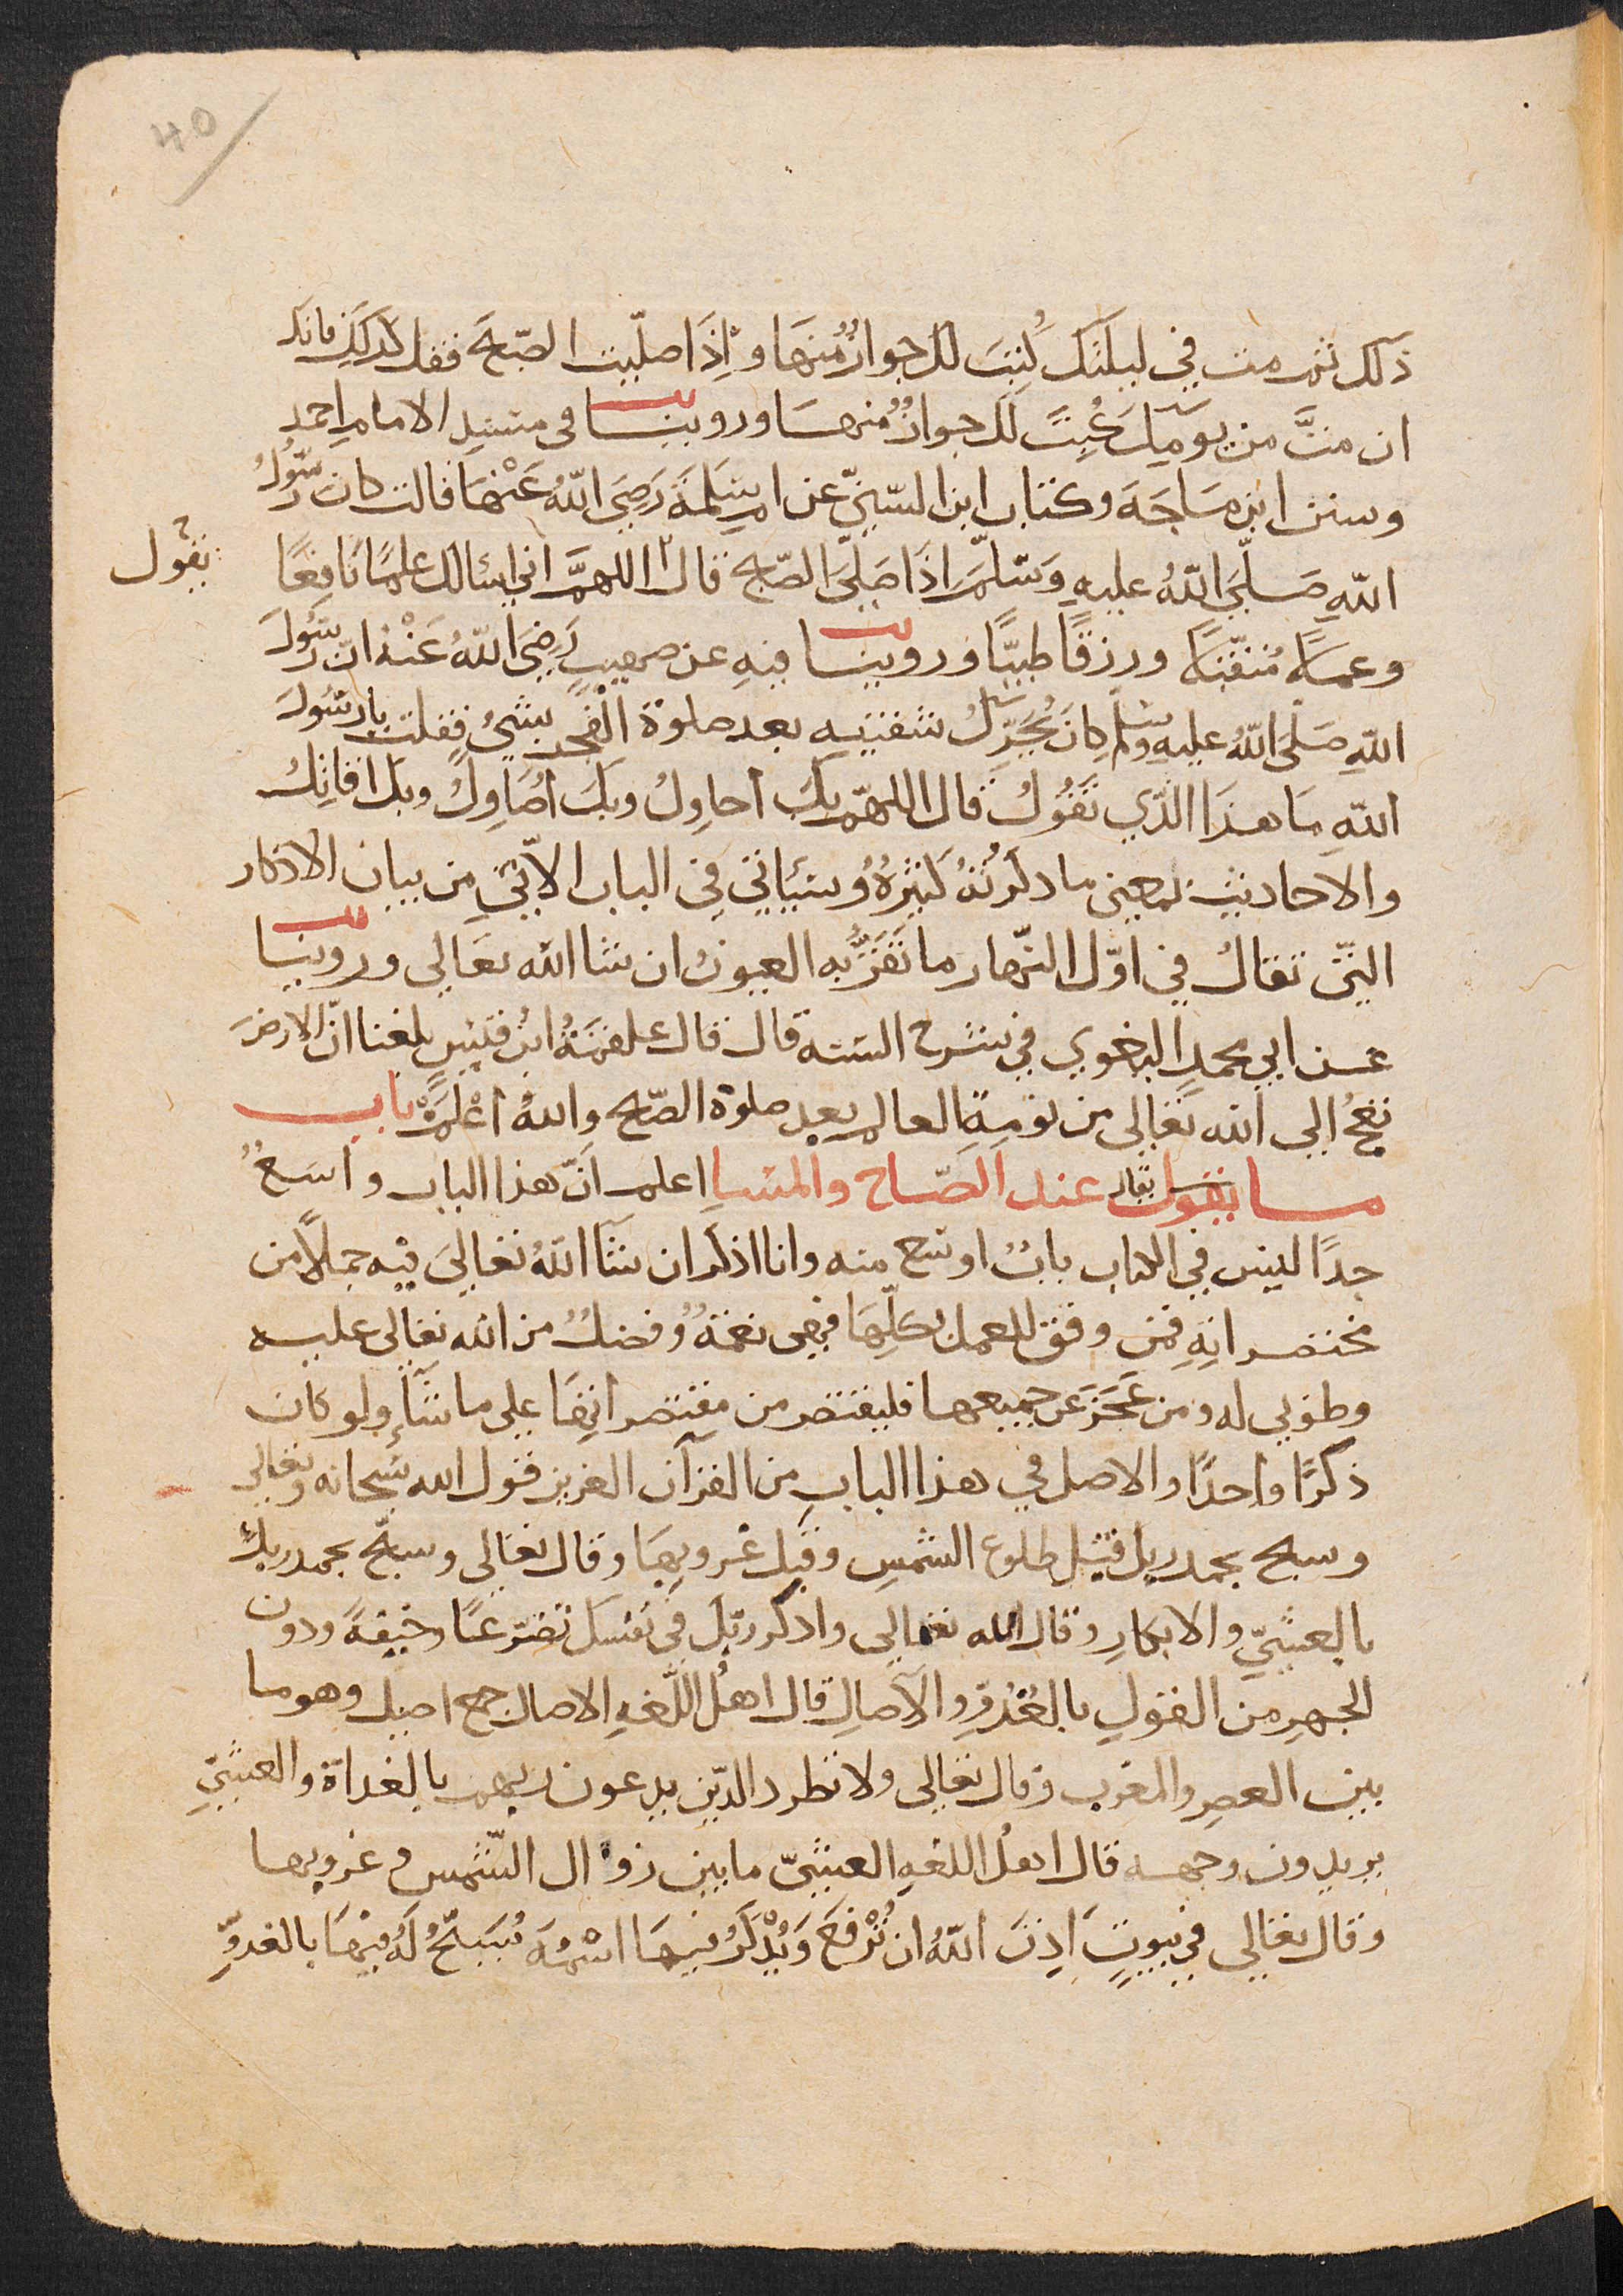 40
ذلك ثم مت في ليلتك كُتِبَ لك جوارٌ منها وإِذَا صلّيت الصّبحَ فقل كذلك فانك
ان متَّ من يومِك كُتِبَ لك جوارٌ منها وروينا فى مسند الامام احمد
وسنن ابن ماجَةَ وكتاب ابن السّنيّ عن ام سَلَمَةَ رَضِيَ اللّهُ عَنْهَا قالت كان رَسُولُ
اللّهِ صَلَّى اللّهُ عليهِ وَسَلَّمَ اذَا صَلَّى الصّبح قال اللهمَّ اني اسئالك علمًا نَافِعًا
يقول
وعملًا مُتقبّلًا ورزقًا طيّبًا وروينا فيهِ عن صهيبٍ رَضِيَ اللّهُ عَنْهُ انّ رَسُولَ
اللّهِ صَلَّى اللّهُ عليهِ وسلم كانَ يُحَرِّكُ شفتيهِ بعد صلوة الفجر بشيءٍ فقلت يا رَسُولَ
اللّهِ مَا هذَا الّذي تَقُولُ قال اللهمّ بكَ أحاوِلُ وبكَ أُصَاوِلُ وبك اقاتِلُ
والاحاديث بمعنى ما ذكرتُهُ كثيرةٌ وسياتي في الباب الآتي من بيان الاذكار
التي تقالُ في اوّل النّهار ما تَقَرُّبه العيونُ ان شا الله تعَالى وروينا
عن ابي محمدٍ البغوي في شرح السنه قال قال علقمَةُ ابنُ قيسٍ بلغنا انّ الارضَ
تعجُّ الى الله تعَالى من نومةِ العالم بعد صلوة الصّبح واللهُ أعْلَمُ باب
ما يقول يقال عند الصّباح والمسَاءِ اعلم انّ هذا الباب واسعٌ
جدًا ليس في الكتاب بابٌ اوسع منه وانا اذكر ان شآ اللّهُ تعَالى فيه جملاً من
مختصراتِهِ فمن وفق للعمل بكلِّهَا فهي نعمةٌ وفضلٌ من الله تعالى عليه
وطوبى له ومن عَجَزَ عن جميعها فليقتصر من مختصراتِهَا على ما شَآءَ ولو كان
ذكرًا واحدًا والاصل في هذا الباب من القرآن العزيز قول الله سبحانه وتعالى
وسبح بحمد ربك قبل طلوع الشمسِ وقبل غروبِهَا وقال تعَالى وسبّح بحمد ربك
بالعشيّ والابكارِ وقال الله تعَالى واذكر ربّك فى نفسك تضرّعًا وخيفةً ودون
الجهرِ من القولِ بالغُدوِّ والآصالِ قال اهلُ اللّغهِ الاصال جمع اصيل وهو ما
بين العصرِ والمغرب وقال تعَالى ولا تطرد الّذين يدعون ربهم بالغداة والعشيّ
يريدون وجهه قال اهلُ اللغهِ العشيّ ما بين زوال الشّمس وغروبها
وقال تعالى في بيوتٍ اَذِنَ اللّهُ ان تُرْفَعَ وَيُذْكَرَ فيهَا اسْمُهُ يُسَبّحُ لَهُ فيْهَا بالغدوِّ